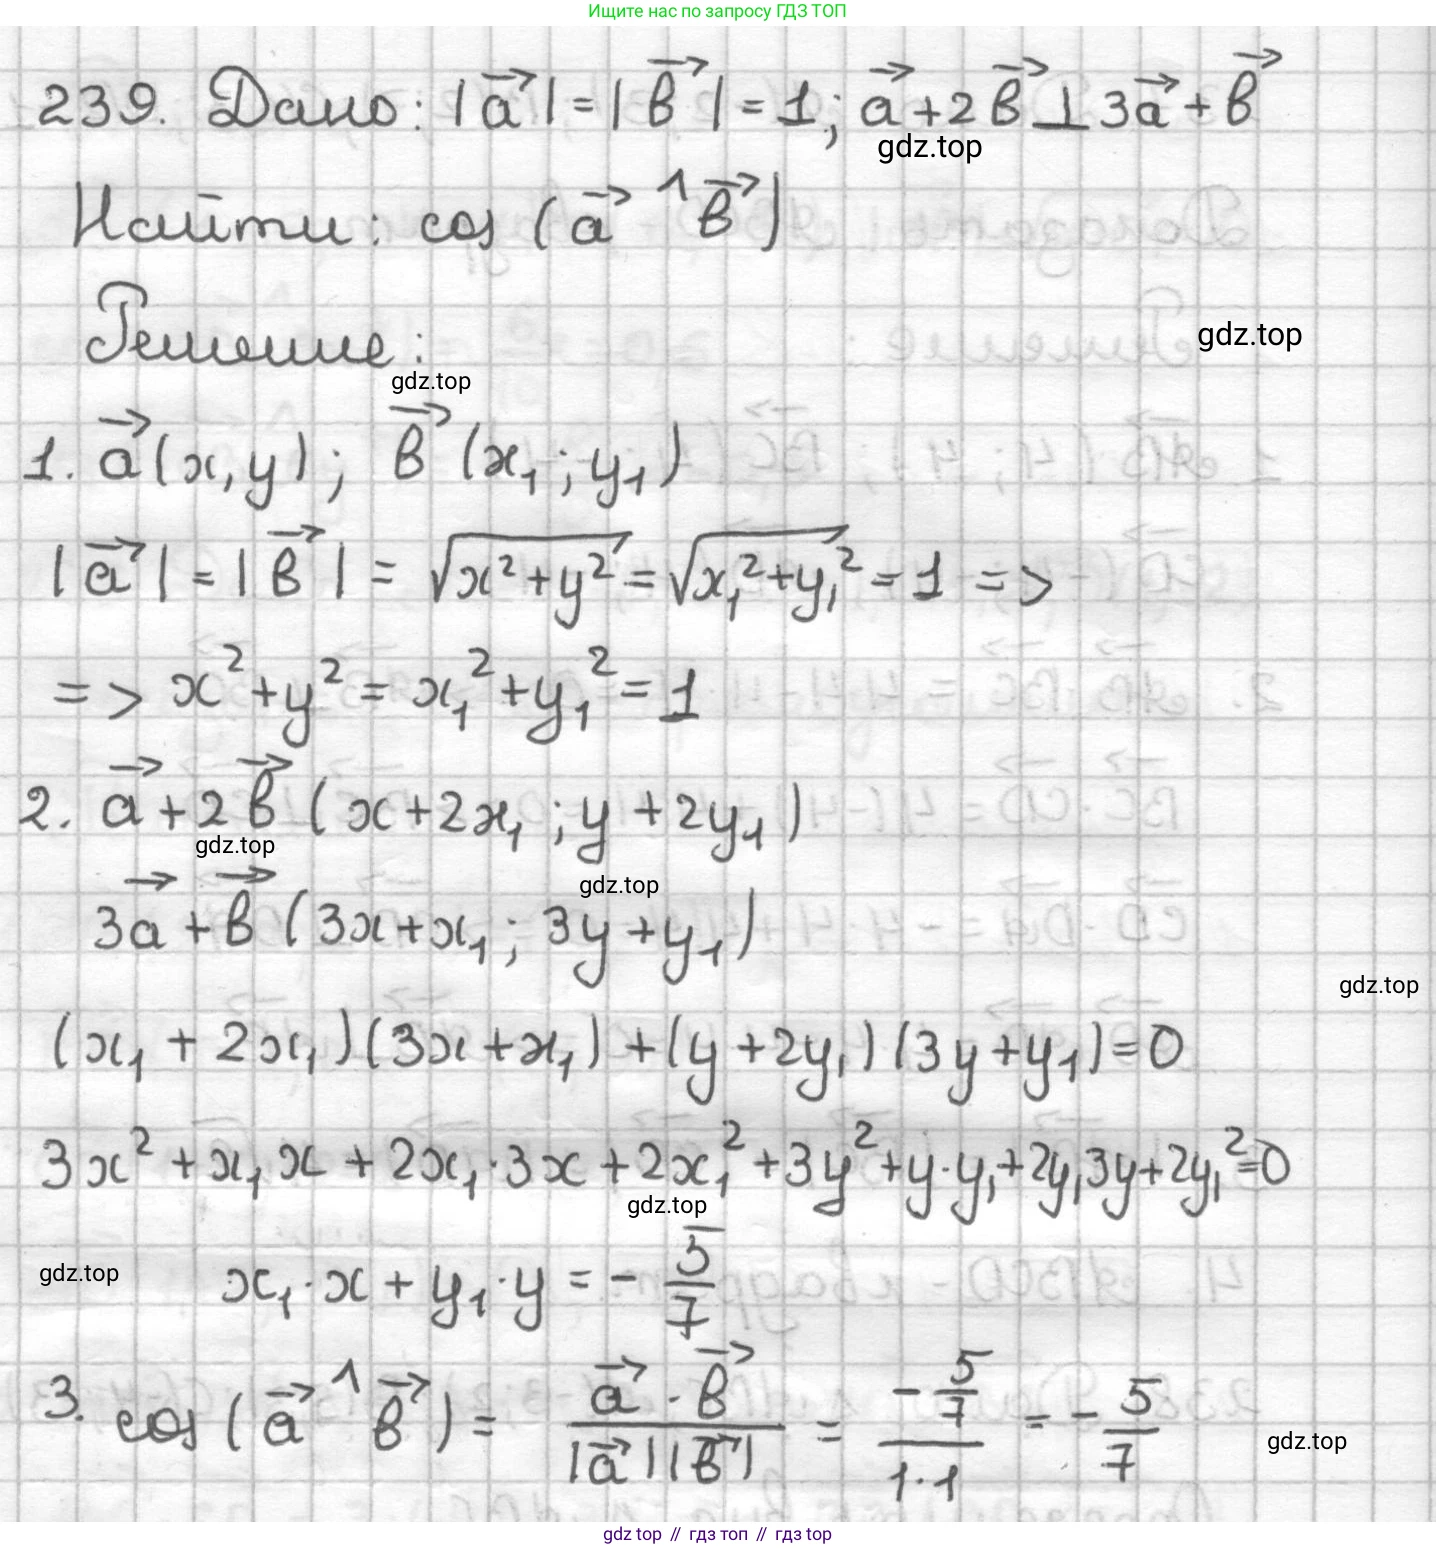 Ищите нас по запросу ГДЗ ТОП
239. Дано: |a⃗| = |b⃗| = 1; a⃗ + 2b⃗ ⊥ 3a⃗ + b⃗
gdz.top
Найти: cos (a⃗ ^ b⃗)
Решение:
gdz.top
gdz.top
1. a⃗(x, y); b⃗(x₁; y₁)
|a⃗| = |b⃗| = √(x² + y²) = √(x₁² + y₁²) = 1 =>
=> x² + y² = x₁² + y₁² = 1
2. a⃗ + 2b⃗ (x + 2x₁; y + 2y₁)
gdz.top
gdz.top
3a⃗ + b⃗ (3x + x₁; 3y + y₁)
gdz.top
(x₁ + 2x₁)(3x + x₁) + (y + 2y₁)(3y + y₁) = 0
3x² + x₁x + 2x₁·3x + 2x₁² + 3y² + y·y₁ + 2y₁3y + 2y₁² = 0
gdz.top
gdz.top
x₁·x + y₁·y = - 5/7
3. cos (a⃗ ^ b⃗) = a⃗·b⃗ / |a⃗||b⃗| = (-5/7) / 1·1 = - 5/7
gdz.top
gdz top // гдз топ // gdz top